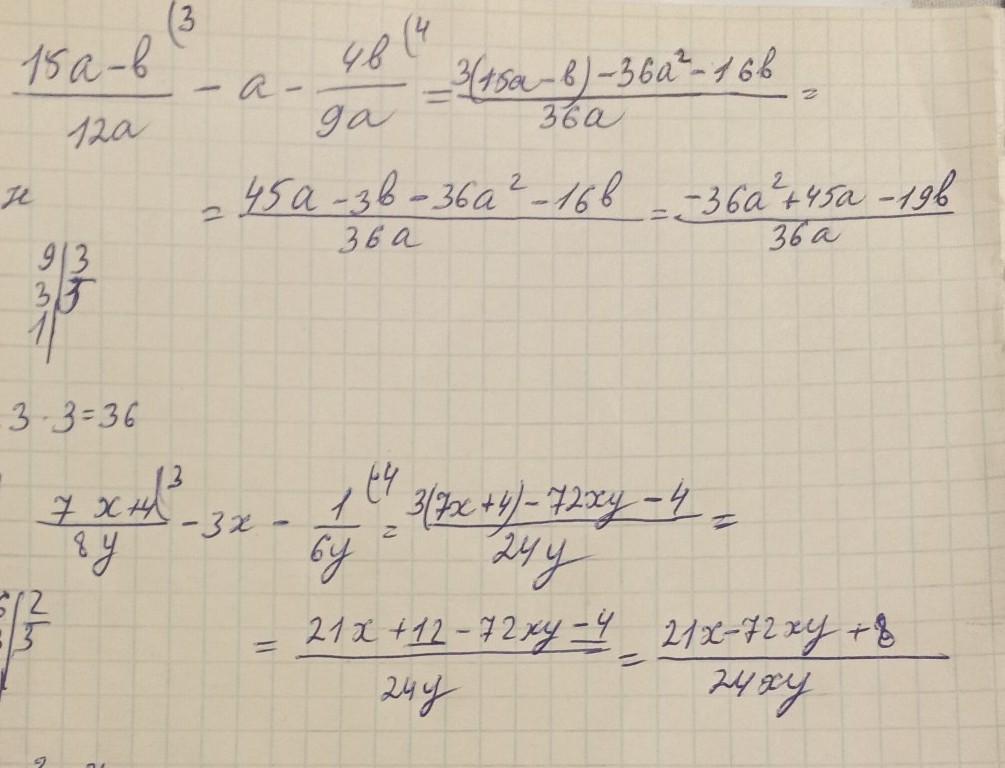 (15a-в)/(12a) (3 - a - (4в)/(9a) (4 = (3(15a-в)-36a²-16в)/(36a) =
= (45a-3в-36a²-16в)/(36a) = (-36a²+45a-19в)/(36a)
9|3
3|3
1|
3·3=36
(7x+4)/(8y) (3 - 3x - 1/(6y) (4 = (3(7x+4)-72xy-4)/(24y) =
6|2
3|3
= (21x+12-72xy-4)/(24y) = (21x-72xy+8)/(24xy)